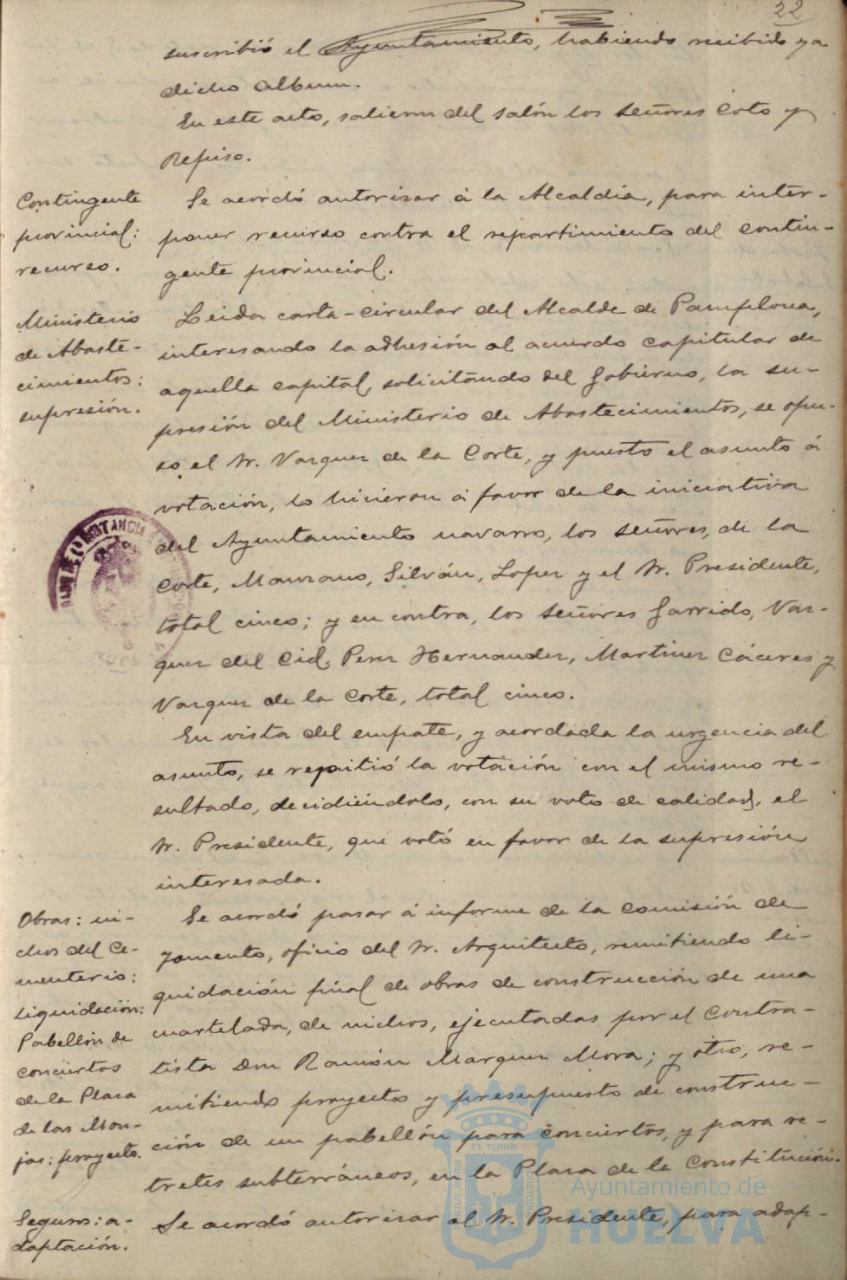 22
suscribió el Ayuntamiento, habiendo recibido ya
dicho album.
En este acto, salieron del salón los señores Coto y
Repiso.
Contingente
provincial:
recurso.
Se acordó autorizar á la Alcaldía, para inter-
poner recurso contra el repartimiento del Contin-
gente provincial.
Ministerio
de Abaste-
cimientos:
supresión.
Leida carta-circular del Alcalde de Pamplona,
interesando la adhesión al acuerdo capitular de
aquella capital, solicitando del Gobierno, la su-
presión del Ministerio de Abastecimientos, se opu-
so, el Sr. Vazquez de la Corte, y puesto el asunto á
votación, lo hicieron á favor de la iniciativa
del Ayuntamiento navarro, los señores, de la
Corte, Manzano, Silván, Lopez y el Sr. Presidente,
total cinco; y en contra, los señores Garrido, Vaz-
quez del Cid, Perez Hernandez, Martinez Cáceres y
Vazquez de la Corte, total cinco.
En vista del empate, y acordada la urgencia del
asunto, se repitió la votación con el mismo re-
sultado, decidiéndolo, con su voto de calidad, el
Sr. Presidente, que votó en favor de la supresión
interesada.
Obras: ni-
chos del Ce-
menterio:
liquidación:
Pabellón de
conciertos
de la Plaza
de las Mon-
jas: proyecto.
Se acordó pasar á informe de la Comisión de
Fomento, oficio del Sr. Arquitecto, remitiendo li-
quidación final de obras de construcción de una
cuartelada, de nichos, ejecutadas por el Contra-
tista Don Ramón Marquez Mora; y otro, re-
mitiendo proyecto y presupuesto de construc-
ción de un pabellón para conciertos, y para re-
tretes subterráneos, en la Plaza de la Constitución.
Seguros: a-
daptación.
Se acordó autorizar al Sr. Presidente, para adap-
Ayuntamiento de
HUELVA